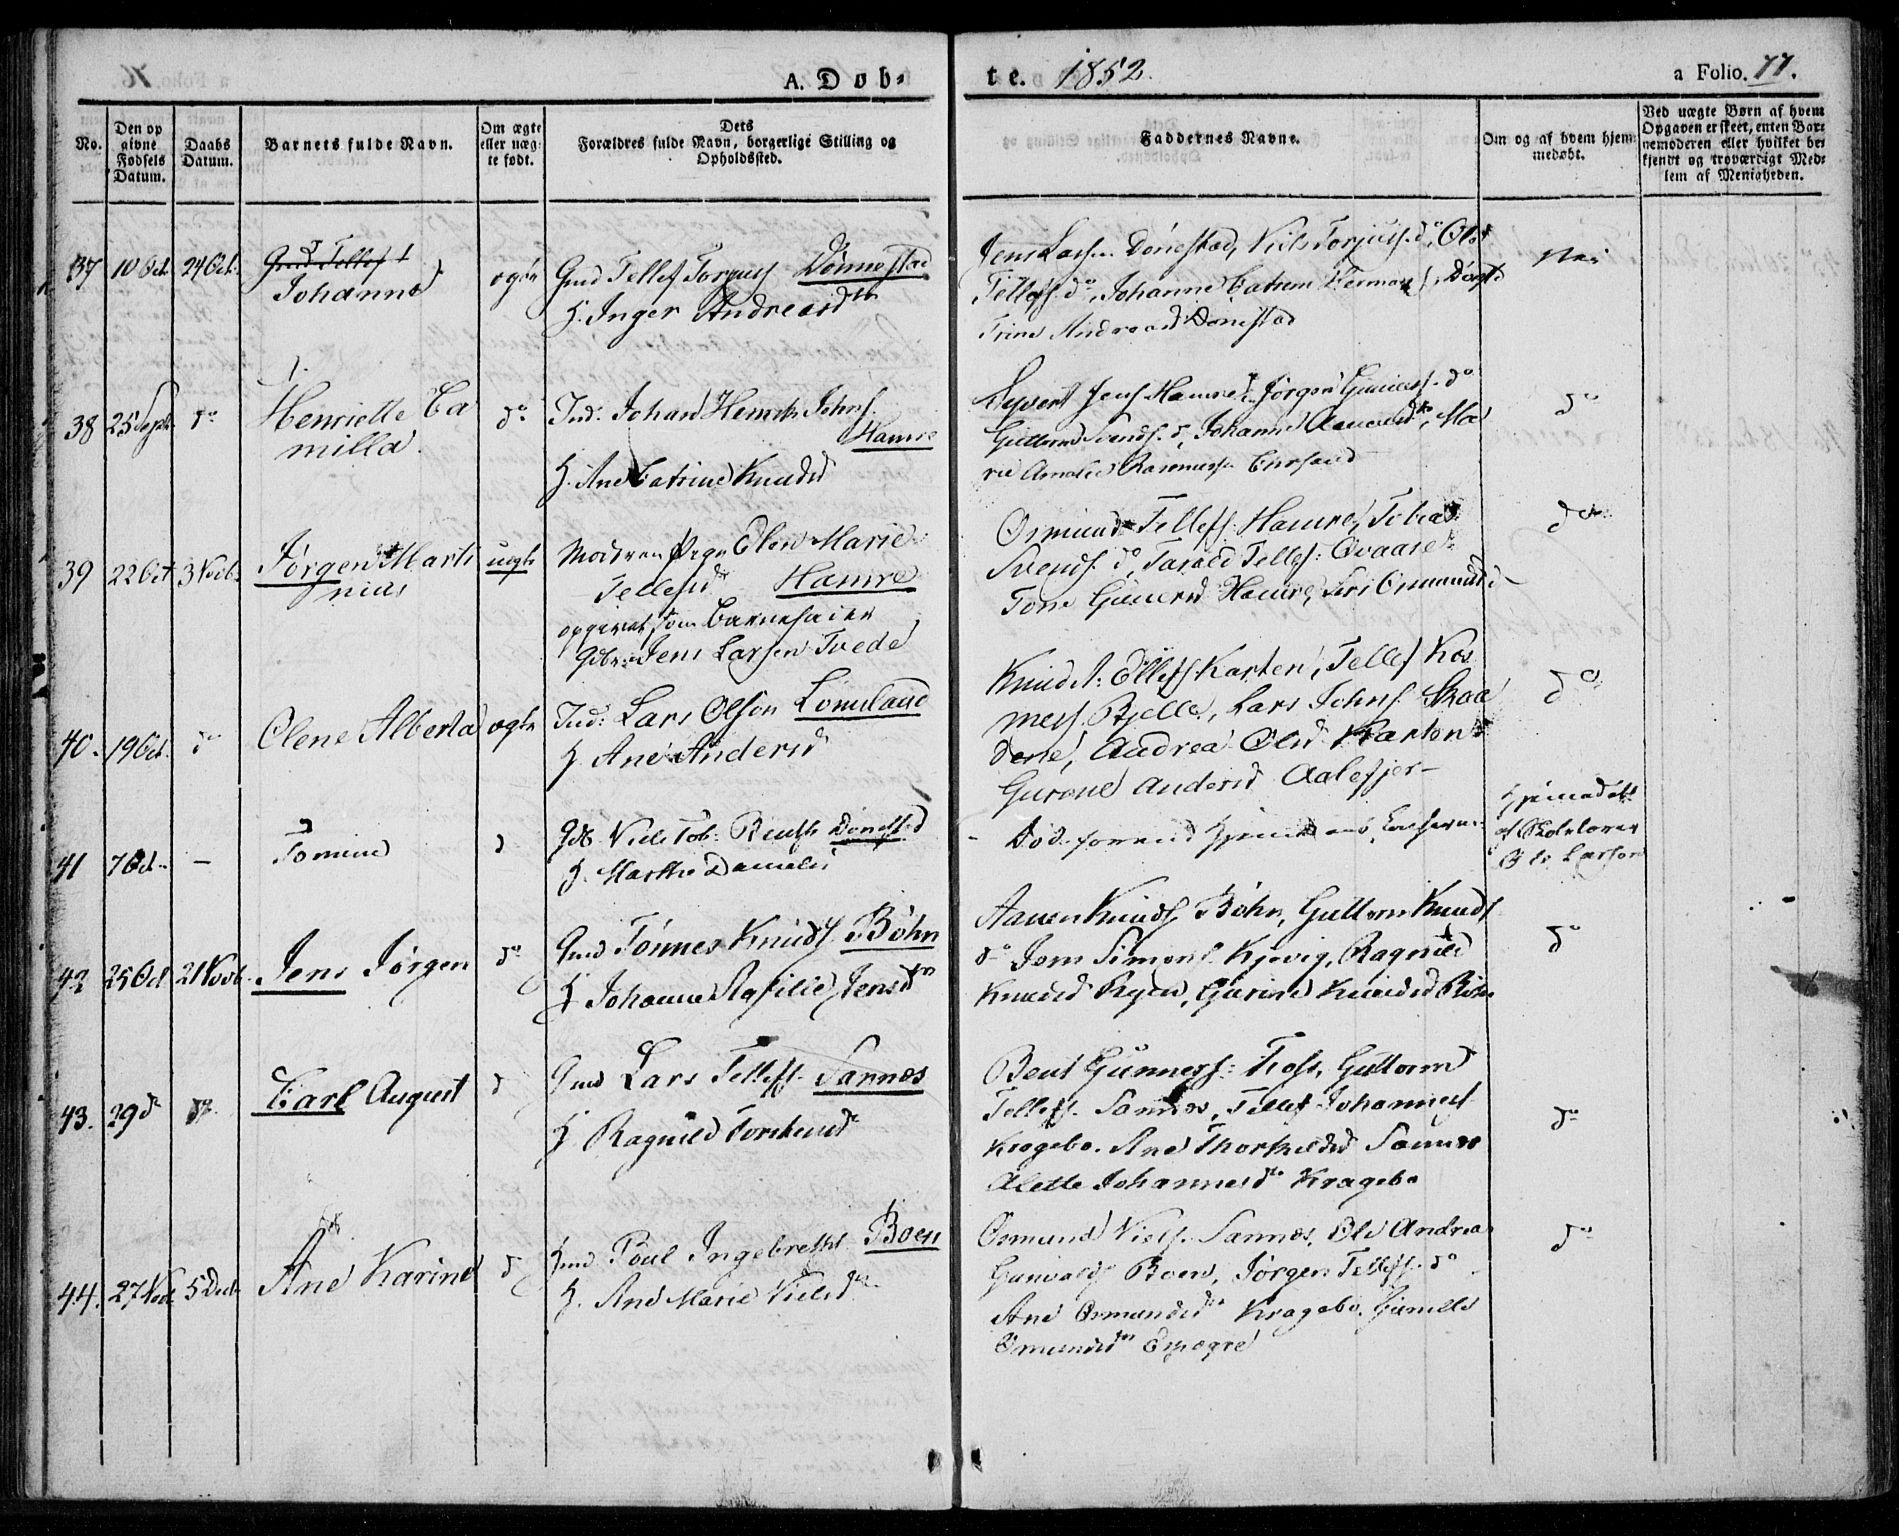 A. Døb-
te. 1852.
a Folio. 77.
No.
Den op
givne
Fødsels
Datum.
Daabs
Datum.
Barnets fulde Navn.
Om ægte
eller uæg-
te født.
Dets
Forældres fulde Navn, borgerlige Stilling og
Opholdssted.
Faddernes Navne.
Om og af hvem hjem-
medøbt.
Ved uægte Børn af hvem
Opgaven er skeet, enten Bar-
nemoderen eller hvilket be-
kjendt og troværdigt Med-
lem af Menigheden.
37 10 Oct. 24 Oct.
Johanne
ægte
Gmd Tellef Torjuss Dønnestad
H. Inger Andreasdtr
Jens Lass. Dønestad, Niels Torjuss. do, Ole
Tellefs. do, Johanne Catrine
Trine Andreasd Dønestad
Nei
38 25 Septb. do
Henriette Ca
milla.
do
Ind: Johan Henrik Johns.
Hamre
H. Ane Catrine Knudsd
Syvert Jens. Hamre, Jørgen Gunders. do
Guttorm Svends. do, Johanne Ma
rie Amalie Rasmuss.
do
39 22 Oct 3 Novb.
Jørgen Marti
nius
uægte
Moderen Pige Olene Marie
Tellefsd Hamre
opgivet som Barnefader
Gbr: Jens Larsen Tvede
Osmund Tellefs. Hamre, Tobias
Svends. do, Tarald Tellefs: Qvaase
Tone Gunersd Hamre, Siri Osmundsd
do
40. 19 Oct. do
Olene Alberta
ægte
Ind: Lars Olsen Lomeland
H. Ane Andersd
Knud A: Ellefs. Karten, Tellef Ros
mess. Bjelle, Lars Johns. Skaa
dene, Andrea Olsd Karten
Gurone Andersd Aalefjær
do
41 7 Oct. —
Tomine
d
Gdb Niels Tob: Bents. Dønestad
H. Marthe Danielsd
Død
Hjemmedøbt
af Skolelærer
Ole Larsen
42 25 Oct 21 Novb.
Jens Jørgen
do
Gmd Tønnes Knuds. Bøhn
H Johanne Rafilie Jensdtr
Aanen Knuds. Bøhn, Guttorm Knuds.
do Jens Simons. Kjevig, Ragnild
Knudsd Ryen, Gurine Knudsd Bøhn
do
43. 29 do do
Carl August
d
Gmd Lars Tellefs. Sannes
H Ragnild Torkeldsd
Bent Gunners: Foss, Guttorm
Tellefs. Sannes, Tellef Johanness
Kragebo. Ane Thorkeldsd Sannes
Alette Johannesdtr Kragebo
do
44. 27 Novb. 5 Decb.
Ane Karine
d
Gmd Poul Ingebreths. Boen
H. Ane Marie Nielsdtr
Osmund Niels. Sannes, Ole Andrea
Gunvalds. Boen, Jørgen Tellefs. do
Ane Osmundsdtr Kragebo. Gunille
Osmundsdtr
do